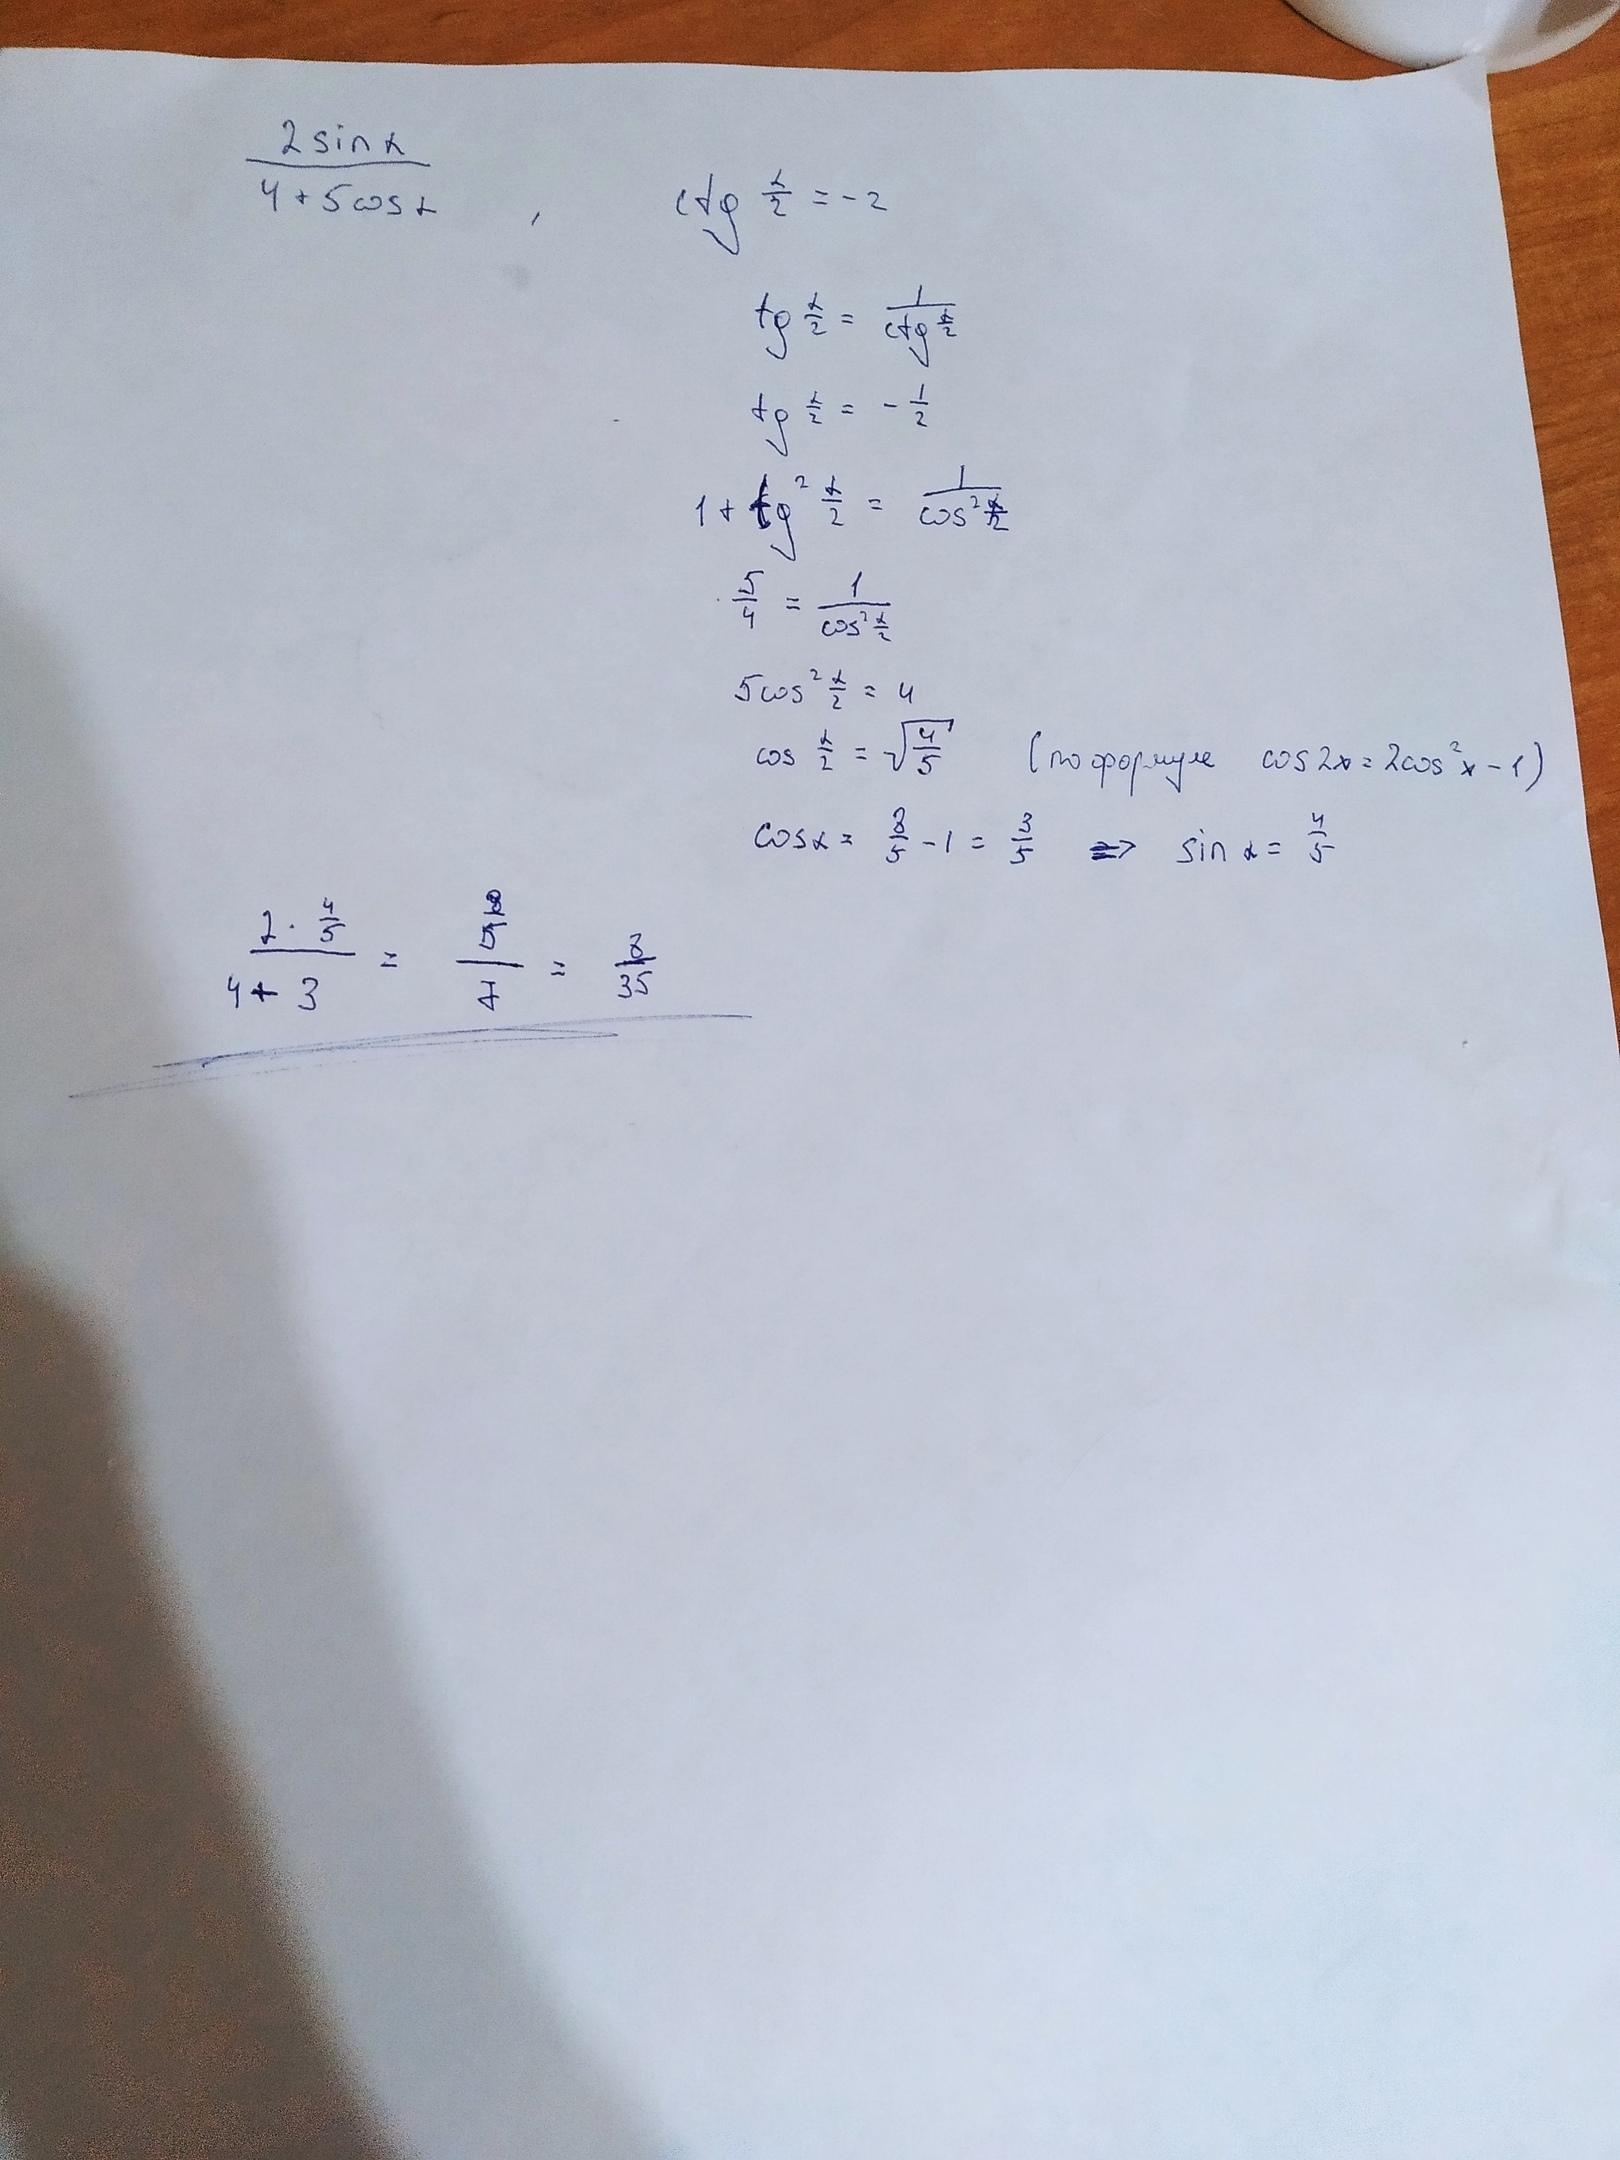 2sinα / 4 + 5cosα , ctg α/2 = -2
tg α/2 = 1 / ctg α/2
tg α/2 = - 1/2
1 + tg² α/2 = 1 / cos² α/2
5/4 = 1 / cos² α/2
5cos² α/2 = 4
cos α/2 = √4/5 (по формуле cos2x = 2cos²x - 1)
cosα = 8/5 - 1 = 3/5 => sin α = 4/5
2 · 4/5 / 4 + 3 = 8/5 / 7 = 8/35